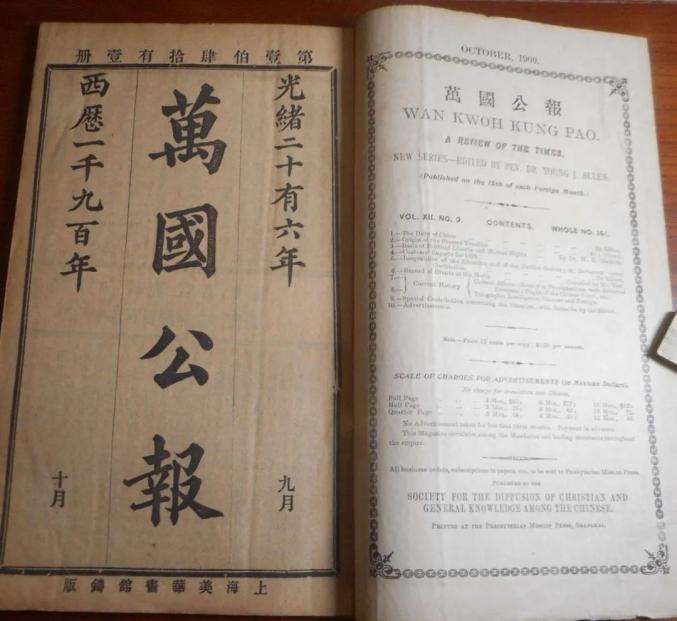 第壹伯肆拾有壹册
光緒二十有六年
九月
萬國公報
西歷一千九百年
十月
上海美華書館鑄版
OCTOBER, 1900.
萬國公報
WAN KWOH KUNG PAO.
A REVIEW OF THE TIMES.
NEW SERIES—EDITED BY REV. DR. YOUNG J. ALLEN.
(Published on the 15th of each Foreign Month.)
VOL. XII. NO. 9. CONTENTS. WHOLE NO.
1.—The Duty of China
2.—Origin of the Present Trouble
3.—Basis of Political Liberty and Human Rights
4.—Customs' Imports for 1899
6.—Record of Events in the North
7.—
8.— Current History
Telegraphic Intelligence, Chinese and Foreign.
9.—Special Contribution concerning the Situation, with Remarks by the Editor.
10.—Advertisements.
Note.—Price 15 cents per copy; $1.50 per annum.
SCALE OF CHARGES FOR ADVERTISEMENTS (in Mexican Dollars).
No charge for translation into Chinese.
Full Page
Half Page
Quarter Page
No Advertisement taken for less than three months. Payment in advance.
This Magazine circulates among the Mandarins and leading merchants throughout
the empire.
All business orders, subscriptions to papers, etc., to be sent to Presbyterian Mission Press.
PUBLISHED BY THE
SOCIETY FOR THE DIFFUSION OF CHRISTIAN AND
GENERAL KNOWLEDGE AMONG THE CHINESE.
PRINTED AT THE PRESBYTERIAN MISSION PRESS, SHANGHAI.